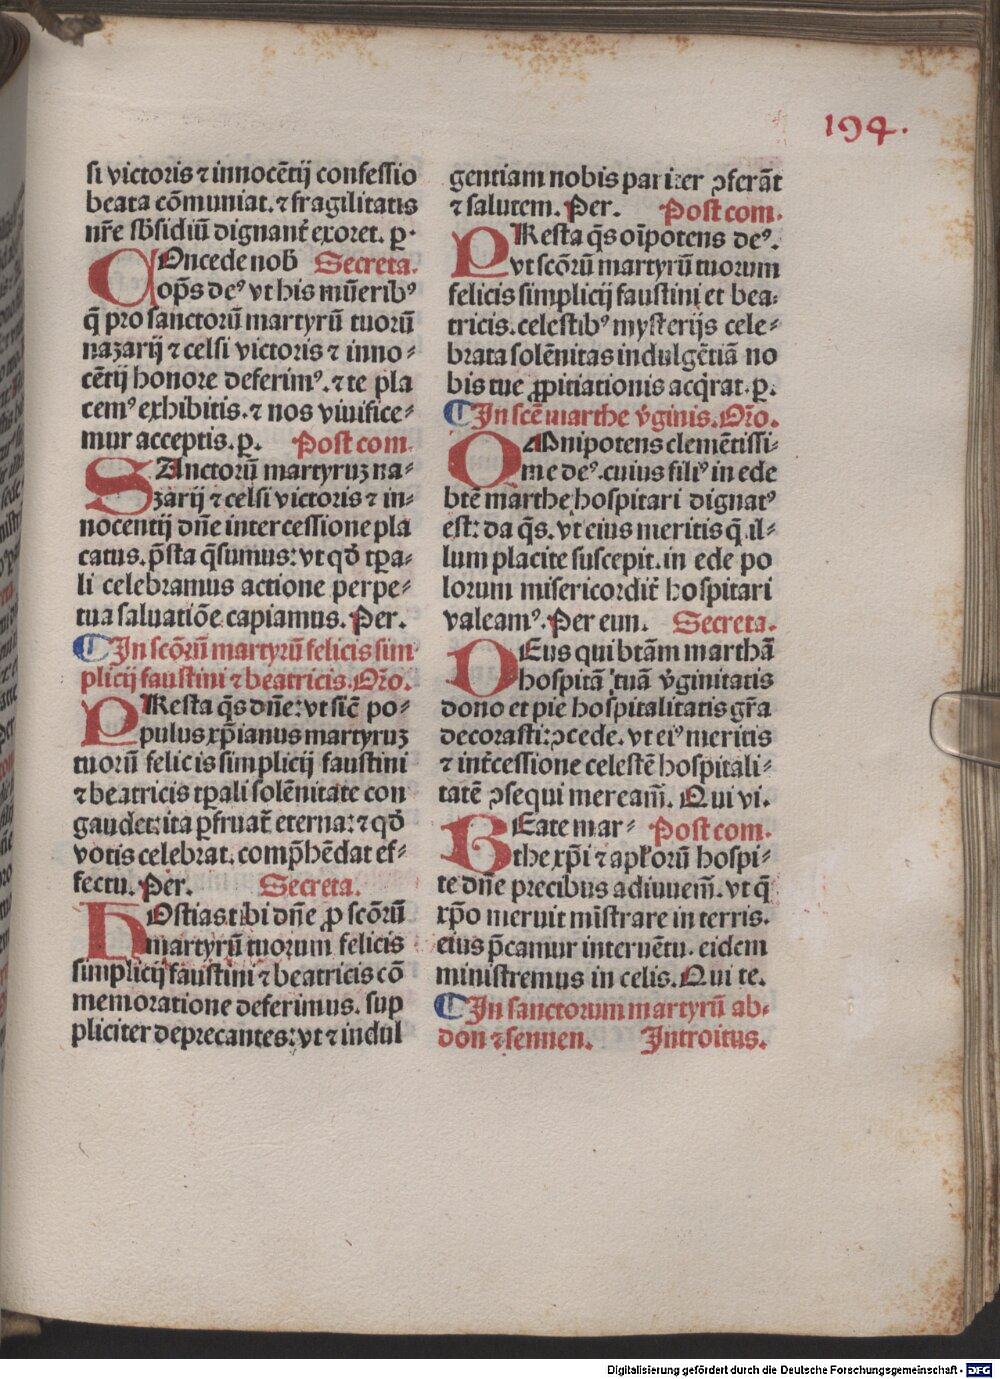 194.
si victoris ⁊ innocētij confessio
beata cōmuniat. ⁊ fragilitatis
nr̄e sb̄sidiū dignant᷑ exoret. p̱.
COncede nob̄ Secreta.
op̄s deꝰ vt his mūeribꝰ
q̄ pro sanctorū martyrū tuorū
nazarij ⁊ celsi victoris ⁊ inno⸗
cētij honore deferimꝰ. ⁊ te pla
cemꝰ exhibitis. ⁊ nos viuifice⸗
mur acceptis. p̱. Post com
SAnctorū martyruꝫ na⸗
zarij ⁊ celsi victoris ⁊ in⸗
nocentij dn̄e intercessione pla
catus. p̄sta q̄sumus: vt qd̄ tꝑa⸗
li celebramus actione perpe⸗
tua saluatiōe capiamus. Per.
¶In scōrū martyrū felicis sim
plicij faustini ⁊ beatricis. Or̄o.
PResta q̄s dn̄e: vt sic̄ po⸗
pulus xp̄ianus martyruꝫ
tuorū felicis simplicij faustini
⁊ beatricis tꝑali solēnitate con
gaudet: ita ꝑfruat᷑ eterna: ⁊ qd̄
votis celebrat. comp̄hēdat ef⸗
fectu. Per. Secreta.
HOstias tibi dn̄e ꝓ scōrū
martyrū tuorum felicis
simplicij faustini ⁊ beatricis cō
memoratione deferimus. sup
pliciter deprecantes: vt ⁊ indul
gentiam nobis pariter ꝯferāt
⁊ salutem. Per. Post com.
PResta q̄s oīpotens deꝰ.
vt scōrū martyrū tuorum
felicis simplicij faustini et bea⸗
tricis. celestibꝰ mysterijs cele⸗
brata solēnitas indulgētiā no
bis tue ꝓpitiationis acq̄rat. p̱.
¶In scē marthe v̄ginis. Or̄o.
OMnipotens clemētissi⸗
me deꝰ. cuius filiꝰ in ede
btē marthe hospitari dignatꝰ
est: da q̄s. vt eius meritis q̄ il⸗
lum placite suscepit. in ede po
lorum misericordit᷑ hospitari
valeamꝰ. Per eun. Secreta.
DEus qui btām marthā
hospitā tuā v̄ginitatis
dono et pie hospitalitatis gr̄a
decorasti: ꝯcede. vt eiꝰ meritis
⁊ int᷑cessione celestē hospitali⸗
tatē ꝯsequi meream̄. Qui vi.
BEate mar⸗ Post com.
the xp̄i ⁊ apl̄orū hospi⸗
te dn̄e precibus adiuuem̄. vt q̄
xp̄o meruit mīstrare in terris.
eius p̄camur interuētu. eidem
ministremus in celis. Qui te.
¶In sanctorum martyrū ab⸗
don ⁊ sennen. Introitus.
Digitalisierung gefördert durch die Deutsche Forschungsgemeinschaft - DFG